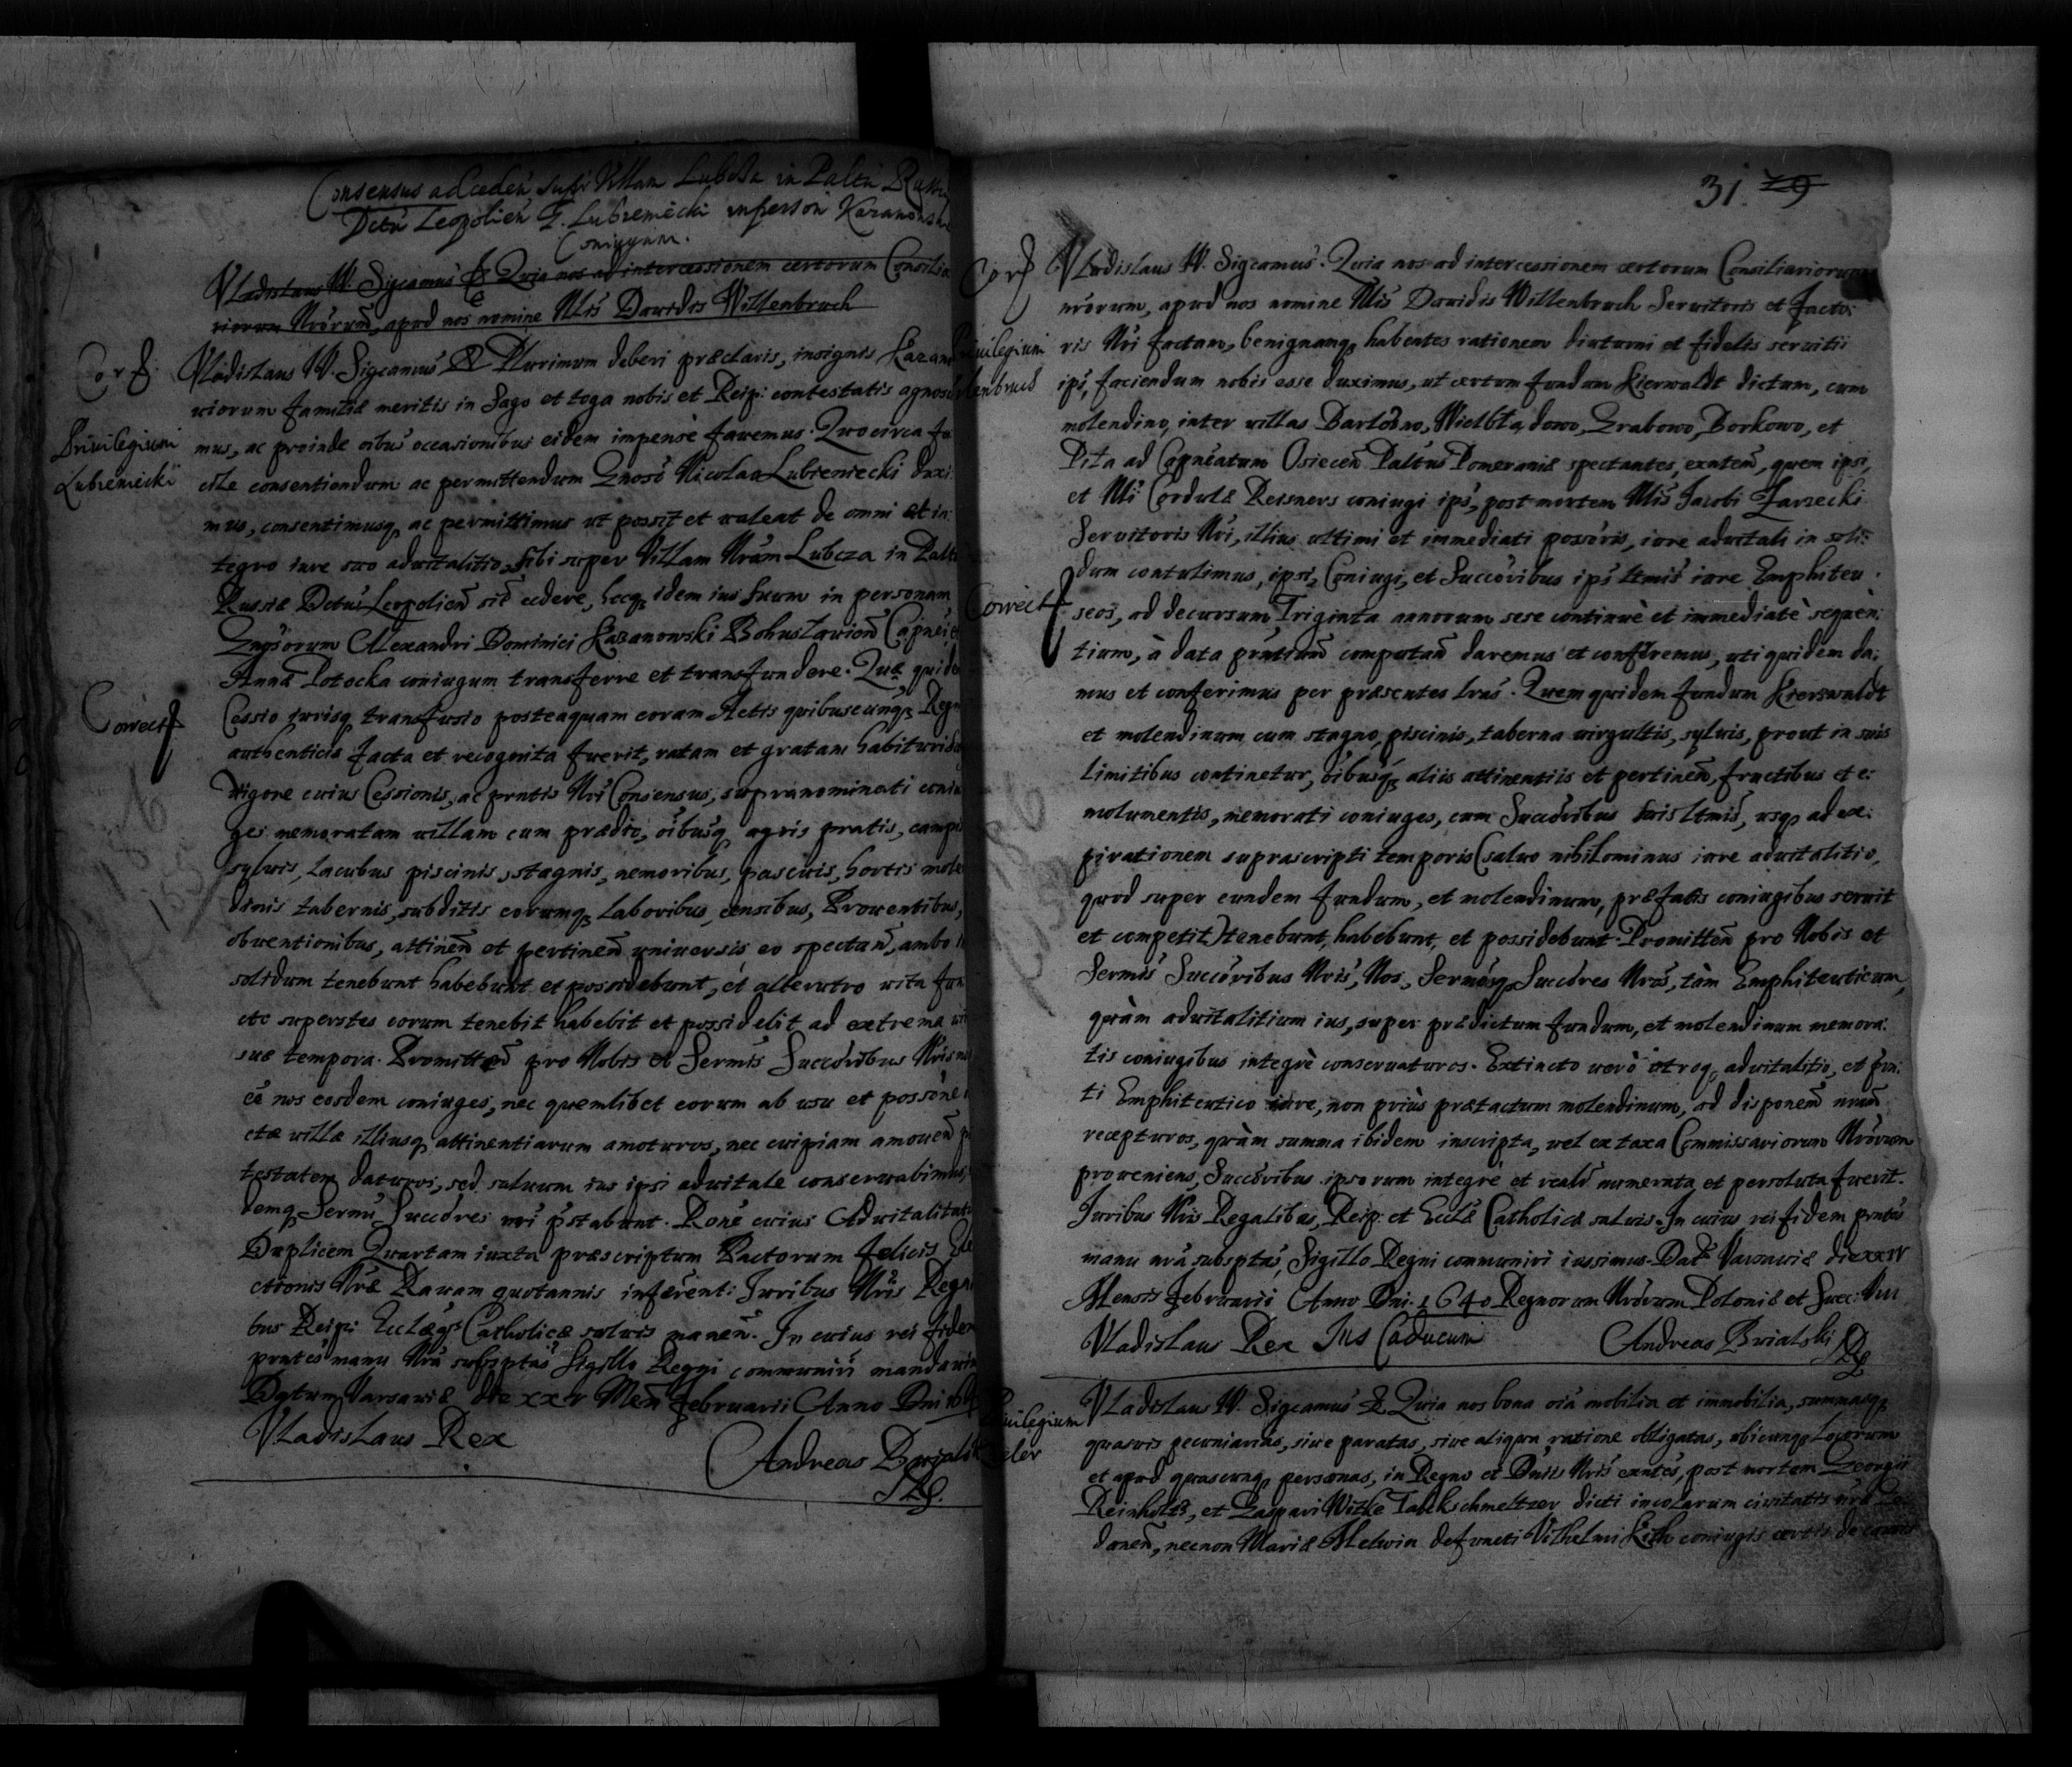 Consensus ad cedeñ super Villam Lubcza in Paltu Russiæ
Dctu Leopolień G. Lubieniecki in person Kazanowski
Coniugum.
Vladislaus IV. Sigcamus & Quia nos ad intercessionem certorum Consilia
riorum Nrorum, apud nos nomine Nlis Dauidis Willenbruch
Corf:
Privilegium
Lubieniecki
Vladislaus IV. Sigcamus & Plurimum deberi præclaris, insignis Kazano
uiorum familiæ meritis in sago et toga nobis et Reip: contestatis agnosci
mus, ac proinde oibus occasionibus eidem impensè fauemus. Quocirca fa
cile consentiendum ac permittendum Gnoso Nicolao Lubieniecki duxi
mus, consentimusq, ac permittimus ut possit et ualeat de omni et in
tegro iure suo aduitalitio, sibi super Villam Nram Lubcza in Paltu
Russiæ Dctus Leopolień sit cedere, hocq idem ius suum in personam
Gnosorum Alexandri Dominici Kazanowski Bohuslauień Capnei et
Annæ Potocka coniugum transferre et transfundere. Quæ quidem
Correct
Cessio iurisq transfusio posteaquam coram Actis quibuscunq Regni
authenticis facta et recognita fuerit, ratam et gratam habituri
uigore cuius Cessionis, ac pntis Nri Consensus, supranominati coniu
ges memoratam uillam cum prædio, oibusq agris pratis, campis
syluis, lacubus piscinis, stagnis, nemoribus, pascuis, hortis molen
dinis tabernis, subditis eorumq laboribus, censibus, Prouentibus,
obuentionibus, attineñ et pertineñ uniuersis eo spectañ, ambo in
solidum tenebunt habebunt et possidebunt, et alterutro uita fun
cto superstes eorum tenebit habebit et possidebit ad extrema uitæ
suæ tempora. Promitteñ pro Nobis et Sermis Succoribus Nris
cè nos eosdem coniuges, nec quemlibet eorum ab usu et possone
ctæ uillæ illiusq attinentiarum amoturos, nec cuipiam amoueñ po
testatem daturos, sed saluum ius ipsi aduitale conseruabimus,
demq Sermi Succores nri pstabunt. Rone cuius Aduitalitatis
Duplicem Quartam iuxta præscriptum Pactorum felicis Ele
ctionis Nræ Rauam quotannis inferent. Iuribus Nris Regali
bus Reip: Ecclæq Catholicæ saluis maneñ. In cuius rei fidem
pntes manu Nra subsptas Sigillo Regni communiri mandauimus
Datum Varsauiæ die xxv Meñ Februarii Anno Dni 1640
Vladislaus Rex
Andreas Bzialski
31. 29
Corf
Privilegium
Willenbruch
Vladislaus IV. Sigcamus. Quia nos ad intercessionem certorum Consiliariorum
nrorum, apud nos nomine Nlis Dauidis Willenbruch Seruitoris et Facto
ris Nri factam, benignamq habentes rationem diuturni et fidelis seruitii
ipŝ, faciendum nobis esse duximus, ut certum fundum Kierwaldt dictum, cum
molendino, inter uillas Bartodno, Wielbładowo, Grabowo, Borkowo, et
Pita ad Capneatum Osieceñ Paltus Pomeraniæ spectantes, exnteñ, quem ipsi,
et Nli Cordulæ Reisners coniugi ipŝ, post mortem Nlis Jacobi Zarzecki
Seruitoris Nri, illius ultimi et immediati possoris, iure aduitali in soli
dum contulimus, ipsi, Coniugi, et Succoribus ipŝ ltmis iure Emphiteu
Correct
seos, ad decursum Triginta annorum sese continuè et immediatè sequen
tium, à data pntium computañ daremus et conferemus, uti quidem da
mus et conferimus per præsentes lras. Quem quidem fundum Kierswaldt
et molendinum cum stagno, piscinis, taberna uirgultis, syluis, prout in suis
limitibus continetur, oibusq aliis attinentiis et pertineñ, fructibus et e
molumentis, memorati coniuges, cum Succoribus suis ltmis, usq ad ex
pirationem suprascripti temporis (saluo nihilominus iure aduitalitio,
quod super eundem fundum, et molendinum, præfatis coniugibus seruit
et competit) tenebunt, habebunt, et possidebunt. Promitteñ pro Nobis et
Sermis Succoribus Nris, Nos, Sermosq Succores Nros, tàm Emphiteuticum,
quàm aduitalitium ius, super prædictum fundum, et molendinum memora
tis coniugibus integrè conseruaturos. Extincto uerò utroq, aduitalitio, et pn
ti Emphiteutico iure, non priùs prætactum molendinum, ad disponeñ nram
recepturos, quàm summa ibidem inscripta, uel ex taxa Commissariorum Nrorum
proueniens, Succoribus ipsorum integrè et realr numerata et persoluta fuerit.
Iuribus Nris Regalibus, Reip: et Ecclæ Catholicæ saluis. In cuius rei fidem pntes
manu nra subsptas, Sigillo Regni communiri iussimus. Dat Varsauiæ die xxiv
Mensis Februarii Anno Dni. 1640 Regnorum Nrorum Poloniæ et Suec: VIII
Vladislaus Rex Ius Caducum Andreas Bzialski
Privilegium
Vladislaus IV. Sigcamus & Quia nos bona oia mobilia et immobilia, summasq
quasuis pecuniarias, siue paratas, siue aliqua ratione obligatas, ubicunq locorum
et apud quascunq personas, in Regno et Dniis Nris exntes, post mortem Georgii
Reinholts, et Caspari Witke Talckschmeltzer dicti incolarum ciuitatis nræ Ge
daneñ, necnon Mariæ Meluin defuncti Vilhelmi Kith coniugis certis de causis